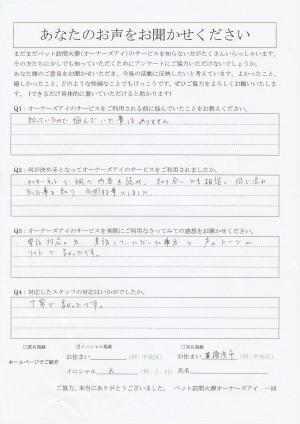 あなたのお声をお聞かせください
まだまだペット訪問火葬(オーナーズアイ)のサービスを知らない方がたくさんいらっしゃいます。
その方たちに少しでも知っていただくためにアンケートにご協力いただけないでしょうか。
あなた様のご意見をお聞かせいただき、今後の活動に反映したいと考えています。よかったこと、
嬉しかったこと、どのような些細なことでもけっこうです。ぜひご協力をよろしくお願いいたしま
す。(できるだけ具体的に書いていただけると助かります)
Q1:オーナーズアイのサービスをご利用される前に悩んでいたことをお教えください。
知っていたので 悩んでいた事は ありません
Q2:何が決め手となってオーナーズアイのサービスをご利用されましたか。
インターネットで 調べ 内容を読み、知り合いにも相談し 同じ流れ
だった事を知り お願い しました。
Q3:オーナーズアイのサービスを実際にご利用になってみての感想をお聞かせください。
電話 対応の方 声のトーンが
ソフトで 良かったです。
Q4:対応したスタッフの対応はいかがでしたか。
丁寧で 良かったです。
□匿名掲載 ☑イニシャル掲載 □実名掲載
ホームページでご紹介
お住まい (例:中央区) お住まい (例:中央区)
イニシャル K (例:J.H) 氏名
ご協力、本当にありがとうございました。 ペット訪問火葬オーナーズアイ 一同